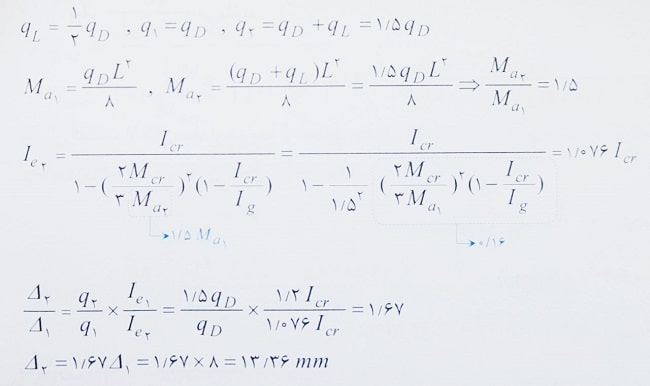 q_L = ۱/۲ q_D , q_۱ = q_D , q_۲ = q_D + q_L = ۱/۵ q_D
M_a۱ = q_D L^۲ / ۸ , M_a۲ = (q_D + q_L) L^۲ / ۸ = ۱/۵ q_D L^۲ / ۸ ⇒ M_a۲ / M_a۱ = ۱/۵
I_e۲ = I_cr / (۱ − (۲M_cr / ۳M_a۲)^۲ (۱ − I_cr / I_g)) = I_cr / (۱ − ۱/۱/۵^۲ (۲M_cr / ۳M_a۱)^۲ (۱ − I_cr / I_g)) = ۱/۰۷۶ I_cr
۱/۵ M_a۱ ۰/۱۶
Δ_۲ / Δ_۱ = q_۲ / q_۱ × I_e۱ / I_e۲ = ۱/۵ q_D / q_D × ۱/۲ I_cr / ۱/۰۷۶ I_cr = ۱/۶۷
Δ_۲ = ۱/۶۷ Δ_۱ = ۱/۶۷ × ۸ = ۱۳/۳۶ mm